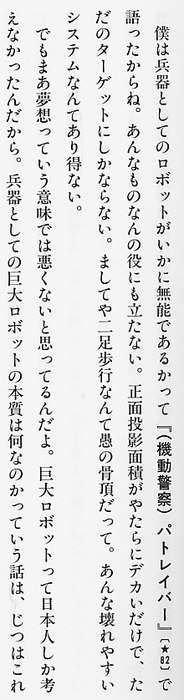 僕は兵器としてのロボットがいかに無能であるかって『(機動警察)パトレイバー』〔★82〕で
語ったからね。あんなものなんの役にも立たない。正面投影面積がやたらにデカいだけで、た
だのターゲットにしかならない。ましてや二足歩行なんて愚の骨頂だって。あんな壊れやすい
システムなんてあり得ない。
でもまあ夢想っていう意味では悪くないと思ってるんだよ。巨大ロボットって日本人しか考
えなかったんだから。兵器としての巨大ロボットの本質は何なのかっていう話は、じつはこれ